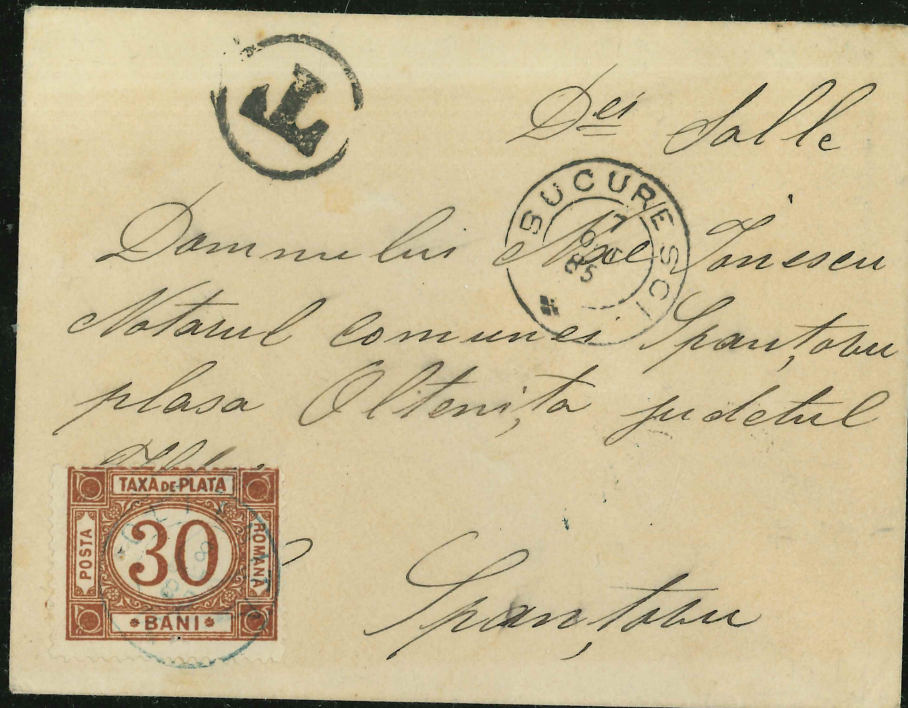 T
Dei Salle
BUCURESCI
17
85
Domnului Ionescu
Notarul comunei Spanţovu
plasa Olteniţa judetul
TAXA DE PLATA
POSTA
30
ROMANA
BANI
Spanţovu